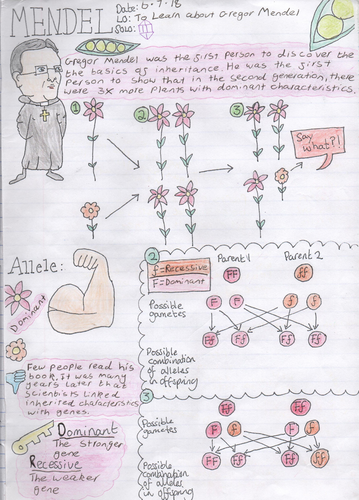 MENDEL
Date: 6-7-18
LO: To Learn about Gregor Mendel
SOLO:
Gregor Mendel was the first person to discover the
the basics of inheritance. He was the first
person to show that in the second generation, there
were 3X more plants with dominant characteristics.
1
2
3
Say
what?!
Allele:
Dominant
Few people read his
book, it was many
years later that
scientists linked
inherited characteristics
with genes.
Dominant
The stronger
gene
Recessive
The weaker
gene
2
f=Recessive
F=Dominant
Parent 1
Parent 2
FF
ff
Possible
gametes
F F f f
Possible
combination
of alleles
in offspring
Ff Ff Ff Ff
3
Ff Ff
Possible
gametes
F f F f
Possible
combination
of alleles
in offspring
FF Ff Ff ff